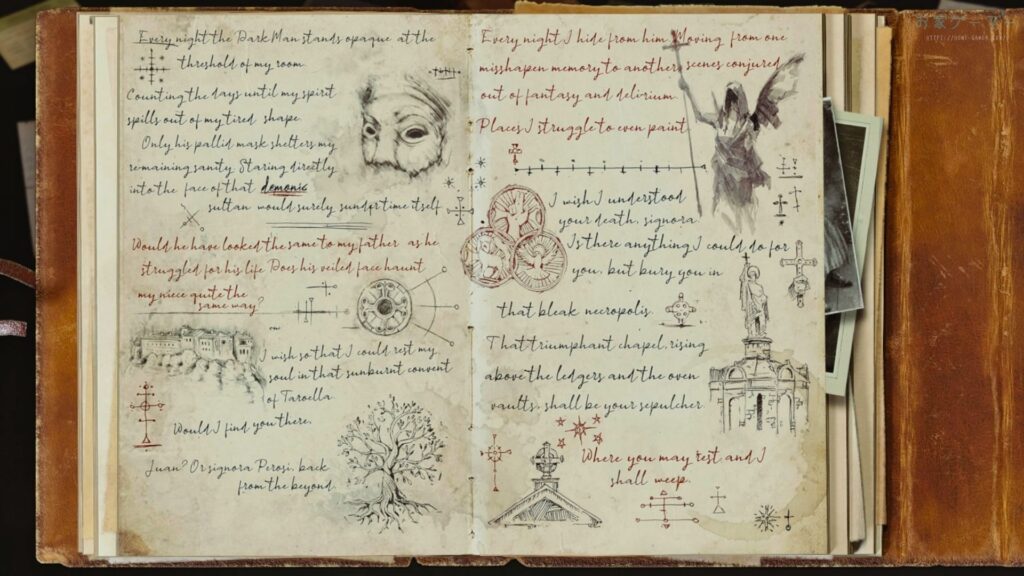 Every night the Dark Man stands opaque at the
threshold of my room.
Counting the days until my spirit
spills out of my tired shape.
Only his pallid mask shelters my
remaining sanity. Staring directly
into the face of that demonic
sultan would surely sunder time itself
Would he have looked the same to my father as he
struggled for his life. Does his veiled face haunt
my niece quite the
same way?
I wish so that I could rest my
soul in that sunburnt convent
of Taroella.
Would I find you there,
Juan? Or signora Perosi, back
from the beyond.
Every night I hide from him. Moving from one
misshapen memory to another, scenes conjured
out of fantasy and delirium.
Places I struggle to even paint.
I wish I understood
your death, signora.
Is there anything I could do for
you, but bury you in
that bleak necropolis.
That triumphant chapel, rising
above the ledgers and the oven
vaults, shall be your sepulcher.
Where you may rest and I
shall weep.